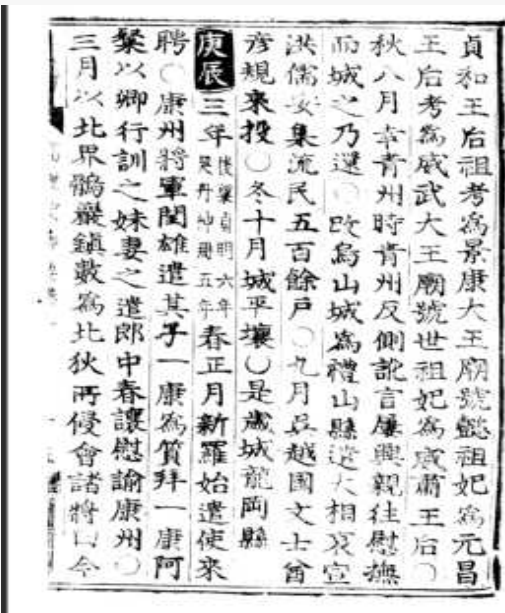 貞和王后祖考爲景康大王廟號懿祖妃爲元昌
王后考爲威武大王廟號世祖妃爲威肅王后○
秋八月幸靑州時靑州反側訛言屢興親往慰撫
而城之乃還○改烏山城爲禮山縣遣大相哀宣
洪儒安集流民五百餘戶○九月吳越國文士酋
彦規來投○冬十月城平壤○是歲城龍岡縣
庚辰三年後梁貞明六年契丹神冊五年春正月新羅始遣使來
聘○康州將軍閏雄遣其子一康爲質拜一康阿
粲以卿行訓之妹妻之遣郎中春讓慰諭康州○
三月以北界鶻巖鎭數爲北狄所侵會諸將曰今